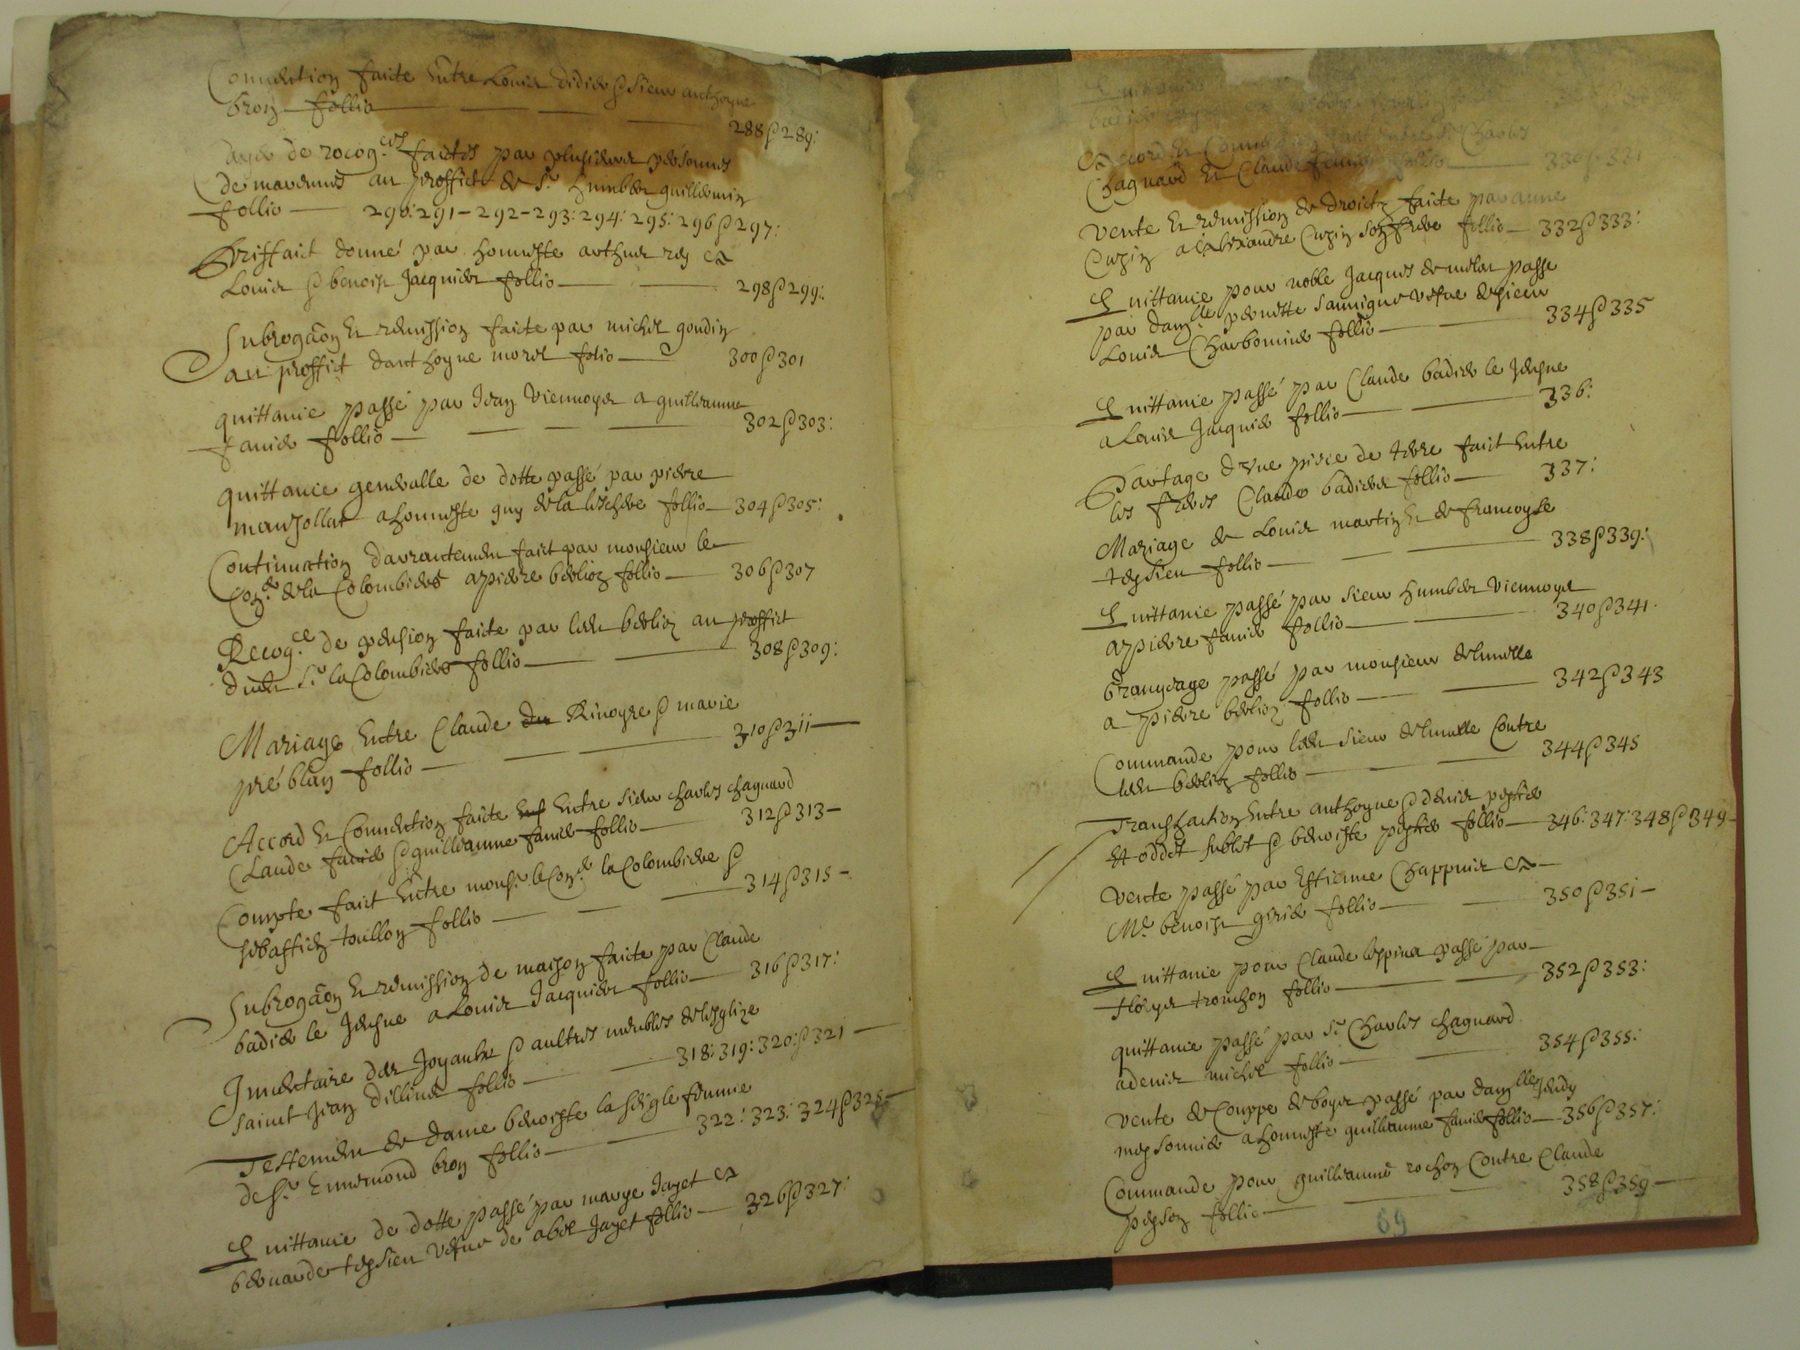 Convention faicte Entre Louis didier & sieur anthoyne
bron follio 288 & 289:
de recog.ces faictes par plusieurs personnes
de marennes au proffict de Sr. humbert guillermin
follio 290: 291 - 292 - 293: 294: 295: 296 & 297:
Prisfaict donné par honneste arthur rey et
Louis & benoist Jacquier follio 298 & 299:
Subrogaōn Et rémission faicte par michel goudin
au proffict danthoyne morel folio 300 & 301
quittance passé par Jean Viennoys a guillaume
fanier follio 302 & 303:
quittance generalle de dotte passé par pierre
manzollat a honneste guy de la leschere follio 304 & 305:
Continuation darrantement faict par monsieur le
Con.er de la Colombiere a pierre berlioz follio 306 & 307
Recog.ce de pension faicte par ledt berlioz au proffict
dudt Sr. la Colombiere follio 308 & 309:
Mariage Entre Claude du Rivoyre & marie
pré blan follio 310 & 311
Accord Et Convention faicte Ent Entre sieur charles chagnard
Claude fanier & guillaume fanier follio 312 & 313
Compte faict Entre mons.r le Con.er la Colombiere &
sebastien toillon follio 314 & 315
Subrogaōn Et rémission de maison faicte par Claude
badier le Jeusne a Louis Jacquier follio 316 & 317:
Inventaire des Joyaulx & aultres meubles de lesglize
sainct Jean dillins follio 318: 319: 320: & 321
Testement de dame benoiste la seigle femme
de Sr. Ennemond bron follio 322: 323: 324 & 325
Quittance de dotte passé par marye Jayet et
bernarde teysieu vefve de abel Jayet follio 326 & 327:
Accord Et Convention faict Entre Sr. Charles
Chagnard Et Claude fanier follio 330 & 331
Vente Et rémission de droictz faicte par anne
Cuzin a alexandre Cuzin son frere follio 332 & 333:
Quittance pour noble Jacques de mellat passé
par dam.lle pernette sauvigne vefve de sieur
Louis Charbonnier follio 334 & 335
Quittance passé par Claude badier le Jeusne
a Louis Jacquier follio 336:
Partage dune piece de terre faict Entre
les freres Claude badier follio 337:
Mariage de Louis martin Et de francoyse
teysieu follio 338 & 339:
Quittance passé par sieur humbert Viennoys
a pierre fanier follio 340 & 341.
Grangeage passé par monsieur
a pierre berlioz follio 342 & 343
Commande pour ledt sieur Contre
ledt berlioz follio 344 & 345
Transaction Entre anthoyne & denis
Et oddet sublet & benoiste follio 346: 347: 348 & 349
Vente passé par Estienne Chappuis et
Me. benoist girier follio 350 & 351
Quittance pour Claude passé par
tronchon follio 352 & 353:
quittance passé par Sr. Charles Chagnard
a denis michel follio 354 & 355:
Vente de Couppe de boys passé par dam.lle Judy
meysonnier a honneste guillaume fanier follio 356 & 357:
Commande pour guillaume rochon Contre Claude
peyson follio 358 & 359
69